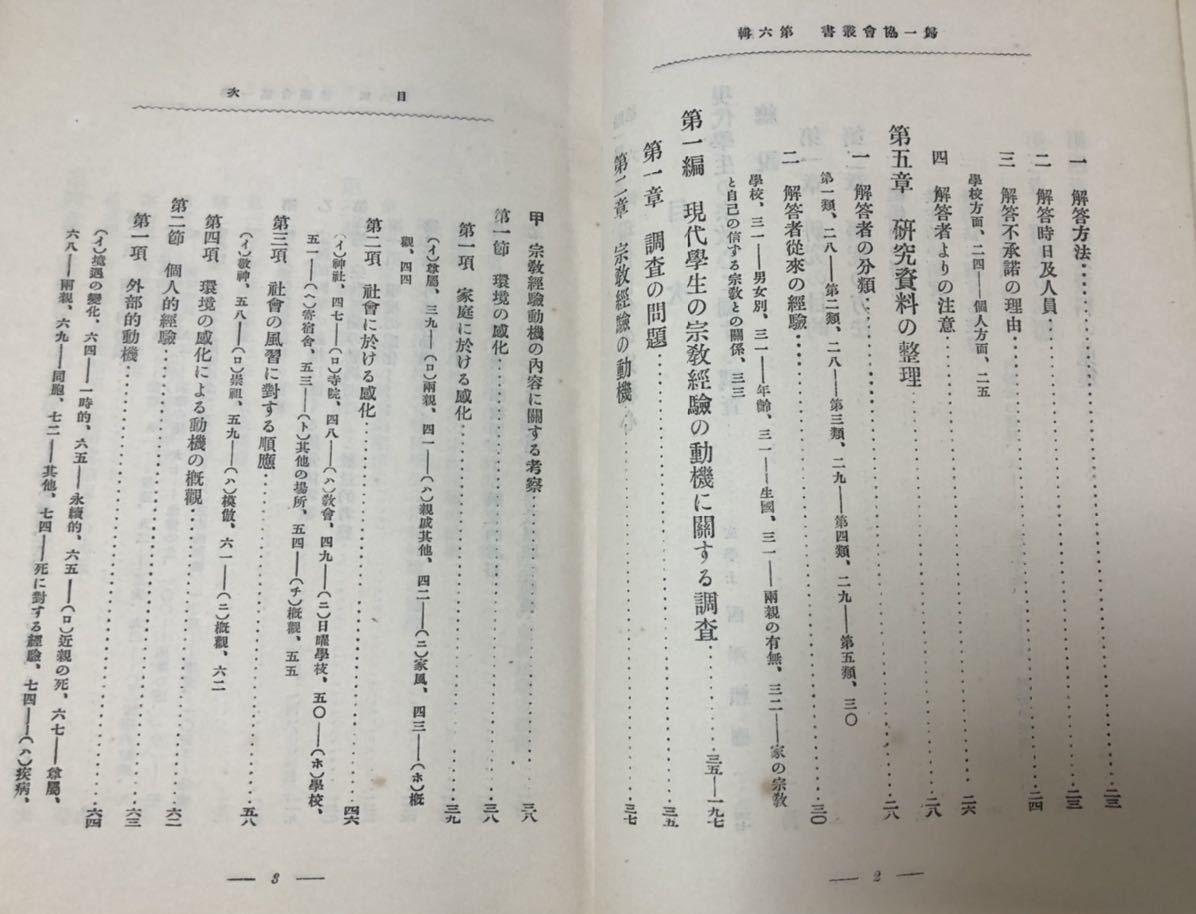 歸一協會叢書　第六輯
一　解答方法………二三
二　解答時日及人員………二三
三　解答不承諾の理由………二四
學校方面、二四——個人方面、二五
四　解答者よりの注意………二六
第五章　硏究資料の整理………二八
一　解答者の分類………二八
第一類、二八——第二類、二八——第三類、二九——第四類、二九——第五類、三〇
二　解答者從來の經驗………三〇
學校、三一——男女別、三一——年齡、三一——生國、三一——兩親の有無、三二——家の宗敎
と自己の信ずる宗敎との關係、三三
第一編　現代學生の宗敎經驗の動機に關する調査………三五—一九七
第一章　調査の問題………三五
第二章　宗敎經驗の動機………三七
— 2 —
目次
甲　宗敎經驗動機の內容に關する考察………三八
第一節　環境の感化………三八
第一項　家庭に於ける感化………三九
（イ）尊屬、三九——（ロ）兩親、四一——（ハ）親戚其他、四二——（ニ）家風、四三——（ホ）槪
觀、四四
第二項　社會に於ける感化………四六
（イ）神社、四七——（ロ）寺院、四八——（ハ）敎會、四九——（ニ）日曜學校、五〇——（ホ）學校、
五一——（ヘ）寄宿舍、五三——（ト）其他の場所、五四——（チ）槪觀、五五
第三項　社會の風習に對する順應………五八
（イ）敬神、五八——（ロ）崇祖、五九——（ハ）模倣、六一——（ニ）槪觀、六二
第四項　環境の感化による動機の槪觀………六二
第二節　個人的經驗………六三
第一項　外部的動機………六四
（イ）境遇の變化、六四——一時的、六五——永續的、六五——（ロ）近親の死、六七——尊屬、
六八——兩親、六九——同胞、七二——其他、七四——死に對する經驗、七四——（ハ）疾病、
— 3 —